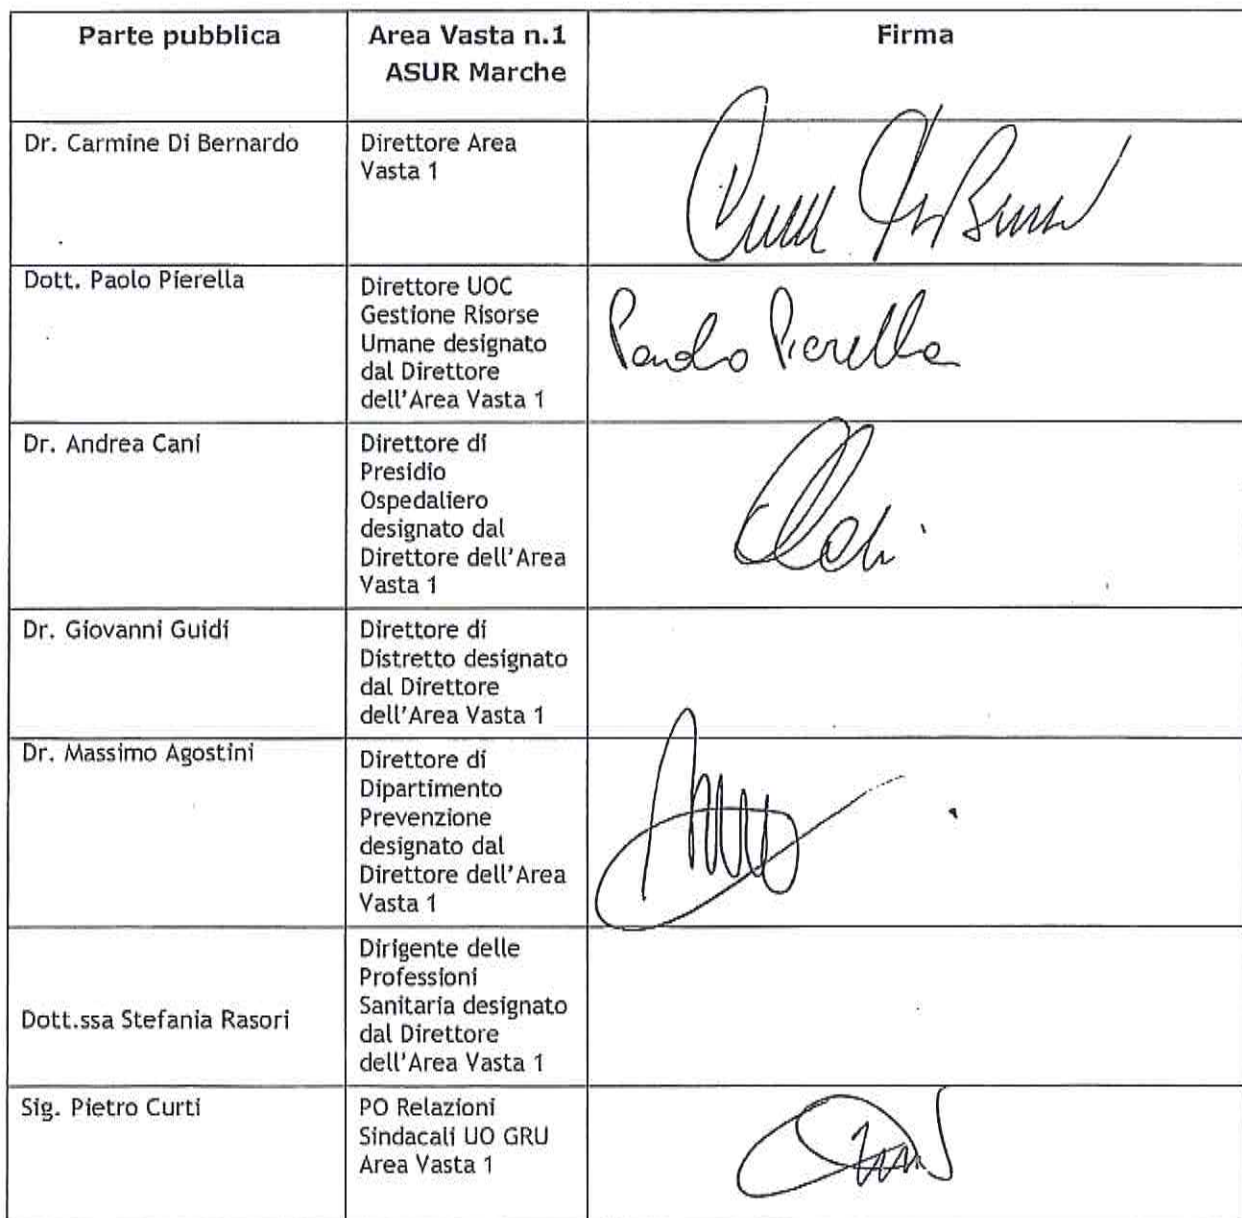 Parte pubblica
Area Vasta n.1
ASUR Marche
Firma
Dr. Carmine Di Bernardo
Direttore Area
Vasta 1
Dott. Paolo Pierella
Direttore UOC
Gestione Risorse
Umane designato
dal Direttore
dell'Area Vasta 1
Paolo Pierella
Dr. Andrea Cani
Direttore di
Presidio
Ospedaliero
designato dal
Direttore dell'Area
Vasta 1
Dr. Giovanni Guidi
Direttore di
Distretto designato
dal Direttore
dell'Area Vasta 1
Dr. Massimo Agostini
Direttore di
Dipartimento
Prevenzione
designato dal
Direttore dell'Area
Vasta 1
Dott.ssa Stefania Rasori
Dirigente delle
Professioni
Sanitaria designato
dal Direttore
dell'Area Vasta 1
Sig. Pietro Curti
PO Relazioni
Sindacali UO GRU
Area Vasta 1